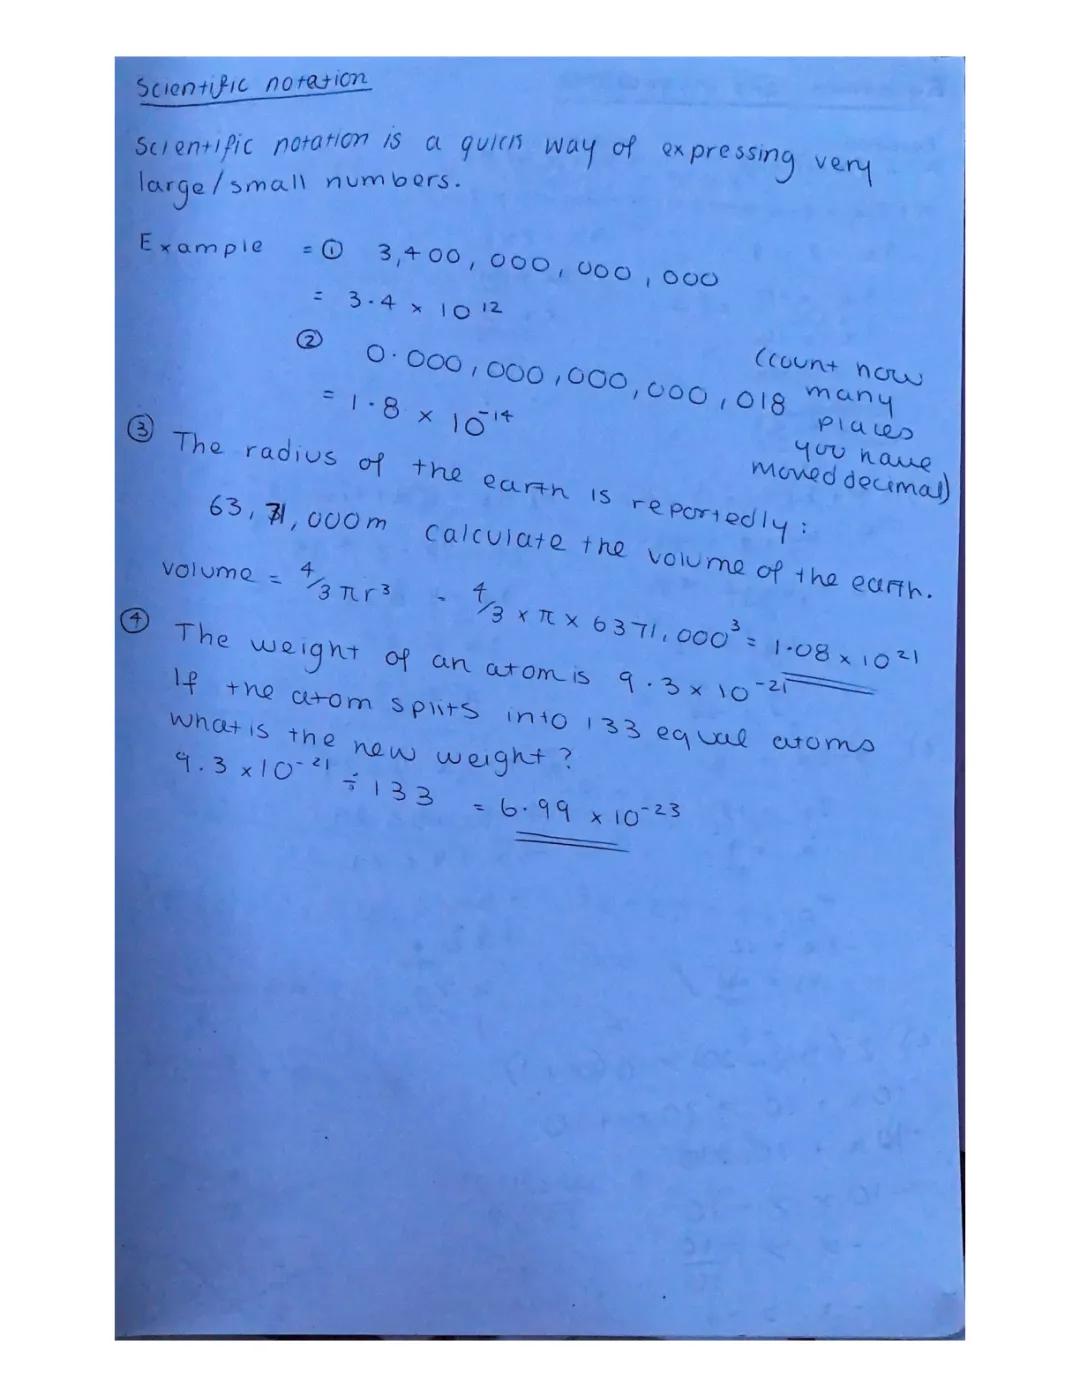 Scientific notation
Scientific notation is a quick way of expressing very
large/small numbers.
Example = ① 3,400,000,000,000
= 3.4 × 10¹²
② 0.000,000,000,000,018
(count how
many
places
you have
moved decimal)
= 1.8 × 10⁻¹⁴
③ The radius of the earth is reportedly:
63,71,000m calculate the volume of the earth.
volume = 4/3 πr³ - 4/3 × π × 6371,000³ = 1.08 × 10²¹
④ The weight of an atom is 9.3 × 10⁻²¹
If the atom splits into 133 equal atoms
what is the new weight?
9.3 × 10⁻²¹ ÷ 133 = 6.99 × 10⁻²³